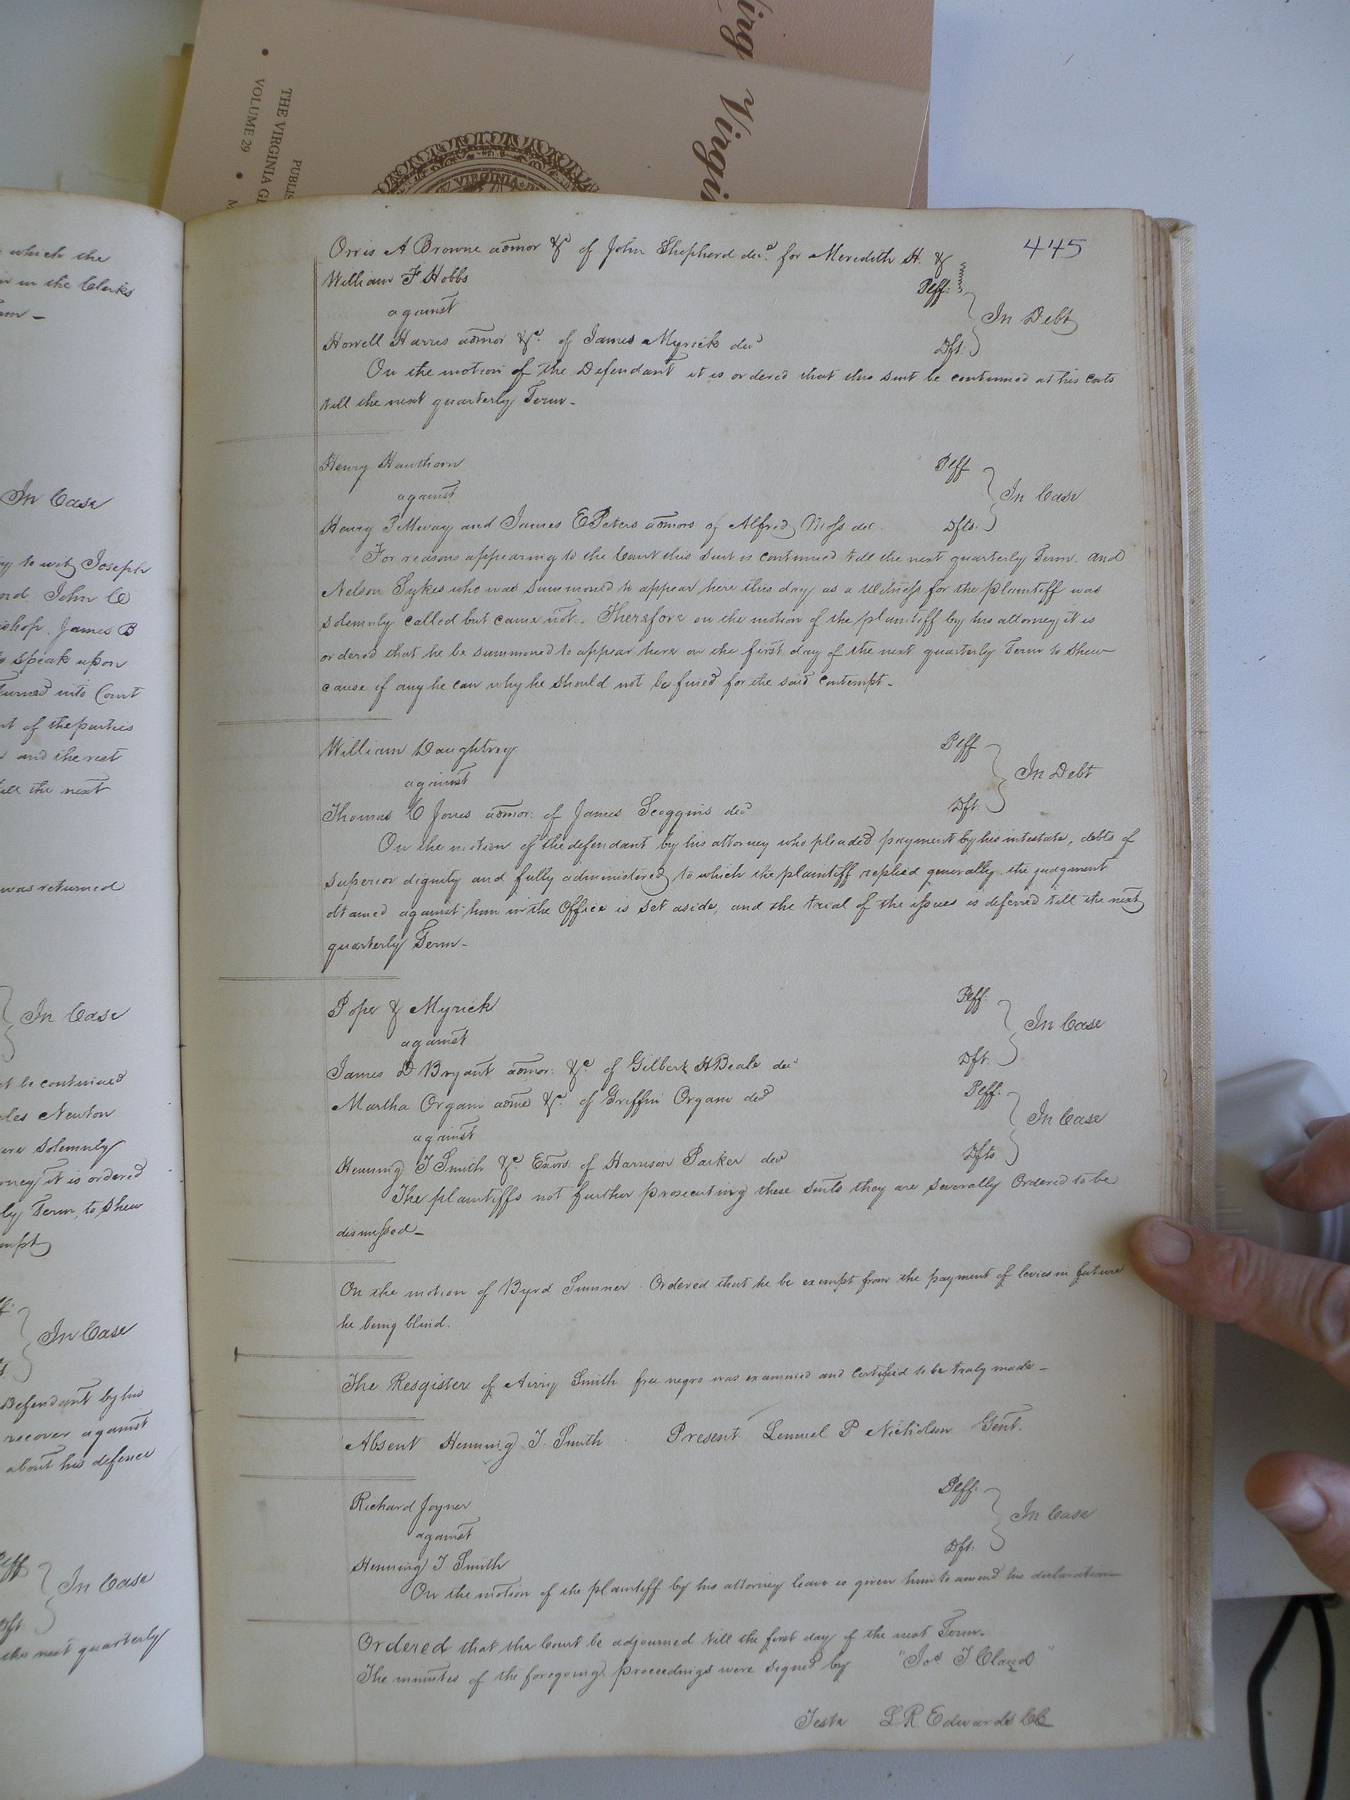 irg Virgi
PUBLIS
THE VIRGINIA GE
VOLUME 29
VIRGINIA
which the
in the Clerks
In Case
to wit Joseph
John C
shop. James B
speak upon
turned into Court
of the parties
and the rest
till the next
was returned
In Case
be continued
Newton
solemnly
it is ordered
Term, to shew
In Case
Defendant by his
recover against
about his defence
Plff
In Case
Dft
the next quarterly
445
Orris A Browne admor &c of John Shepherd decd. for Meredith H. &
William F Hobbs Plff.
against In Debt
Howell Harris admor &c. of James Myrick decd Dft.
On the motion of the Defendant it is ordered that this suit be continued at his costs
till the next quarterly Term-
Henry Hawthorn Plff
against In Case
Henry and James E Peters admors of Alfred Moss dec. Dfts.
For reasons appearing to the Court this suit is continued till the next quarterly Term. and
Nelson Sykes who was summoned to appear here this day as a Witness for the plaintiff was
solemnly called but came not. Therefore on the motion of the plaintiff by his attorney it is
ordered that he be summoned to appear here on the first day of the next quarterly Term to shew
cause if any he can why he should not be fined for the said contempt-
William Daughtrey Plff
against In Debt
Thomas C Jones admor. of James Scoggins decd Dft.
On the motion of the defendant by his attorney who pleaded payment by his intestate, debts of
superior dignity and fully administered, to which the plaintiff replied generally. the judgment
obtained against him in the Office is set aside, and the trial of the issues is deferred till the next
quarterly Term-
Pope & Myrick Plff.
against In Case
James D Bryant admor. &c of Gilbert H Beale decd Dft.
Martha Organ admx &c. of Griffin Organ decd Plff.
against In Case
Henning T Smith &c Exors. of Harrison Parker decd Dfts
The plaintiffs not further prosecuting these suits they are severally Ordered to be
dismissed-
On the motion of Byrd Sumner. Ordered that he be exempt from the payment of levies in future
he being blind.
The Resgister of Avery Smith free negro was examined and Certified to be truly made-
Absent Henning T. Smith Present Lemuel P Nicholson Gent.
Richard Joyner Plff.
against In Case
Henning T Smith Dft.
On the motion of the plaintiff by his attorney leave is given him to amend his declaration
Ordered that the Court be adjourned till the first day of the next Term.
The minutes of the foregoing proceedings were signed by "Jos T Claud"
Teste L R Edwards CC